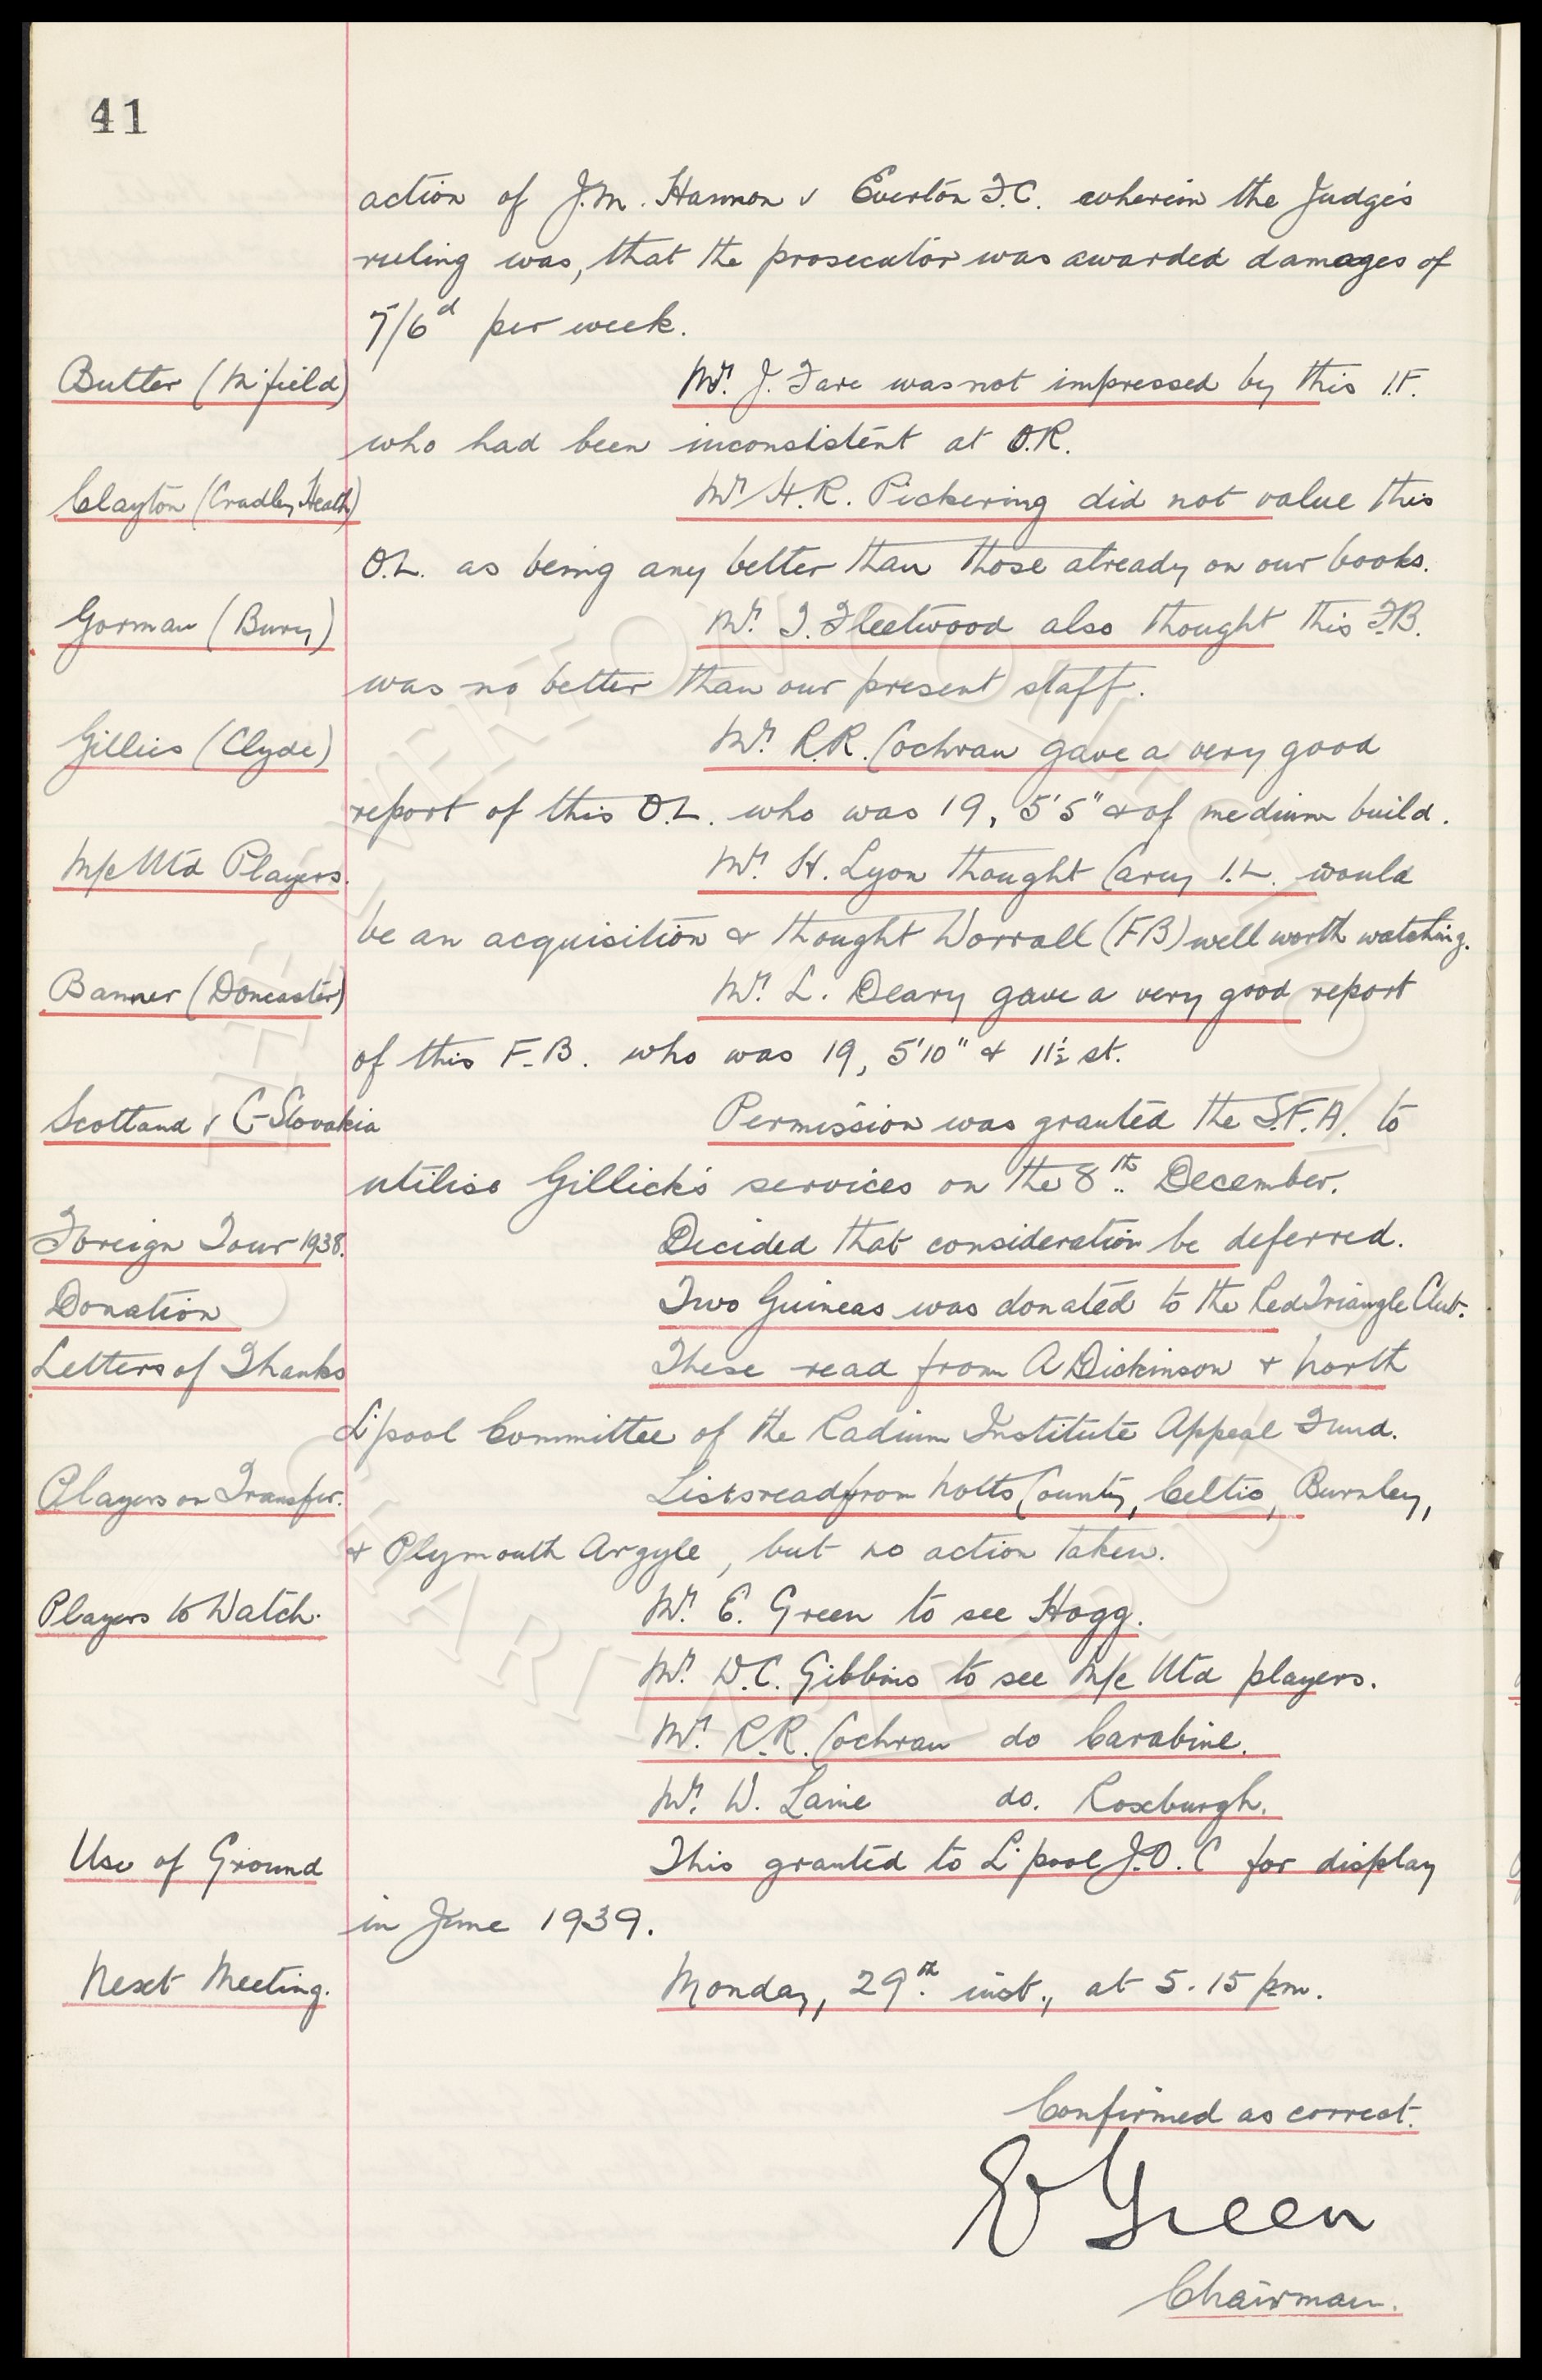 41
action of J.M. Hannon v Everton F.C. wherein the Judge's
ruling was, that the prosecutor was awarded damages of
7/6d per week.
Butter (M'field) Mr. J. Fare was not impressed by this I.F.
who had been inconsistent at O.R.
Clayton (Cradley Heath) Mr H.R. Pickering did not value this
O.L. as being any better than those already on our books.
Gorman (Bury) Mr. T. Fleetwood also thought this F.B.
was no better than our present staff.
Gillies (Clyde) Mr. R.R. Cochran gave a very good
report of this O.L. who was 19, 5'5" & of medium build.
M/c Utd Players. Mr. H. Lyon thought Carey I.L. would
be an acquisition & thought Worrall (FB) well worth watching.
Banner (Doncaster) Mr. L. Deary gave a very good report
of this F.B. who was 19, 5'10" & 11½ st.
Scotland v C-Slovakia Permission was granted the S.F.A. to
utilise Gillick's services on the 8th. December.
Foreign Tour 1938. Decided that consideration be deferred.
Donation Two Guineas was donated to the Red Triangle Club.
Letters of Thanks These read from A Dickinson & North
L'pool Committee of the Radium Institute Appeal Fund.
Players on Transfer. Lists read from Notts County, Celtic, Burnley,
& Plymouth Argyle, but no action taken.
Players to Watch. Mr. E. Green to see Hogg.
Mr. W.C. Gibbins to see M/c Utd players.
Mr. R.R. Cochran do Carabine.
Mr. W. do. Roxburgh.
Use of Ground This granted to L'pool J.O.C for display
in June 1939.
Next Meeting. Monday, 29th. inst., at 5.15 pm.
Confirmed as correct.
E Green
Chairman.